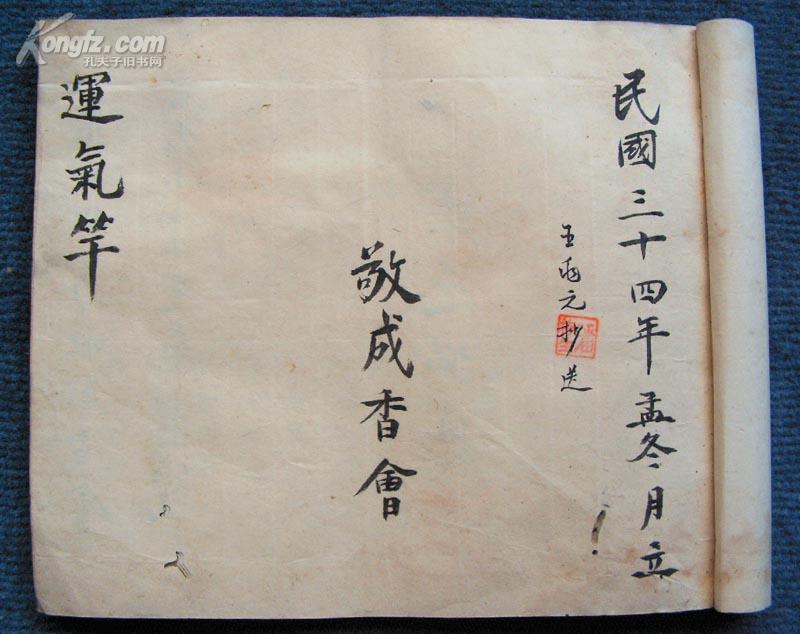 民國三十四年孟冬月立
王雨元抄送
敬成香會
運氣竿
Kongfz.com
孔夫子旧书网